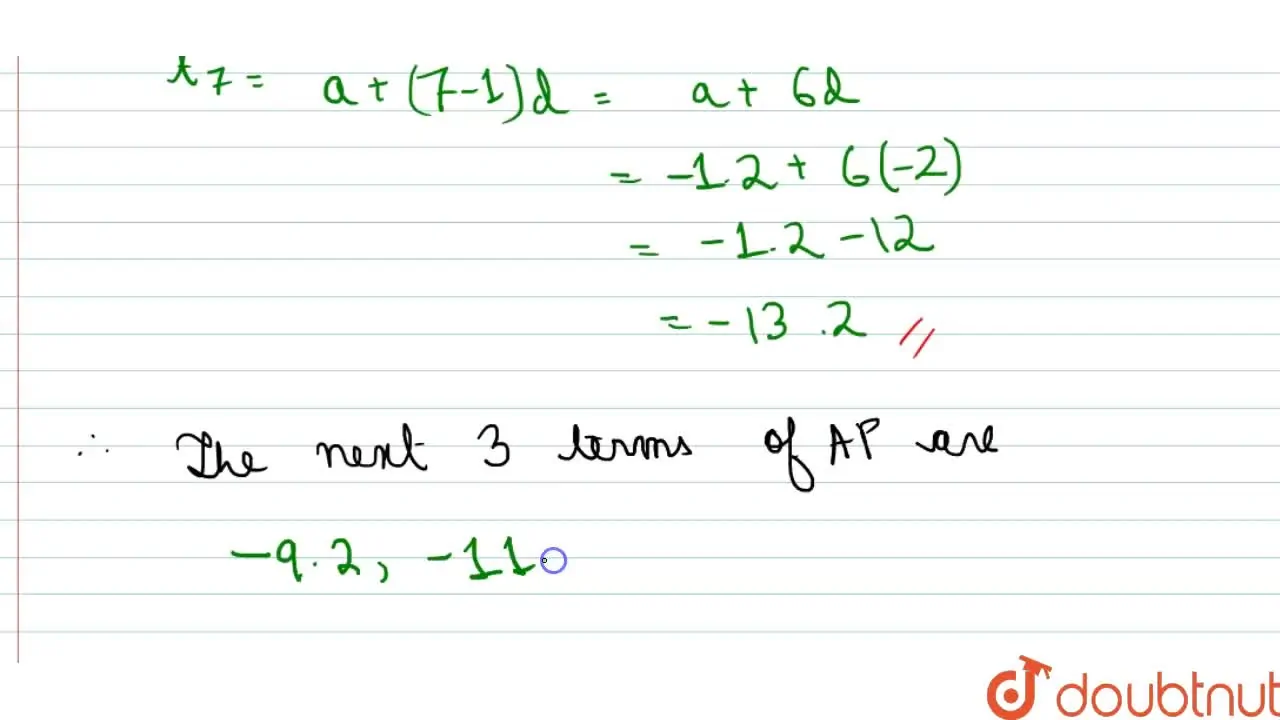 t7 = a + (7-1)d = a + 6d
= -1.2 + 6(-2)
= -1.2 - 12
= -13.2 //
∴ The next 3 terms of AP are
-9.2, -11
doubtnut